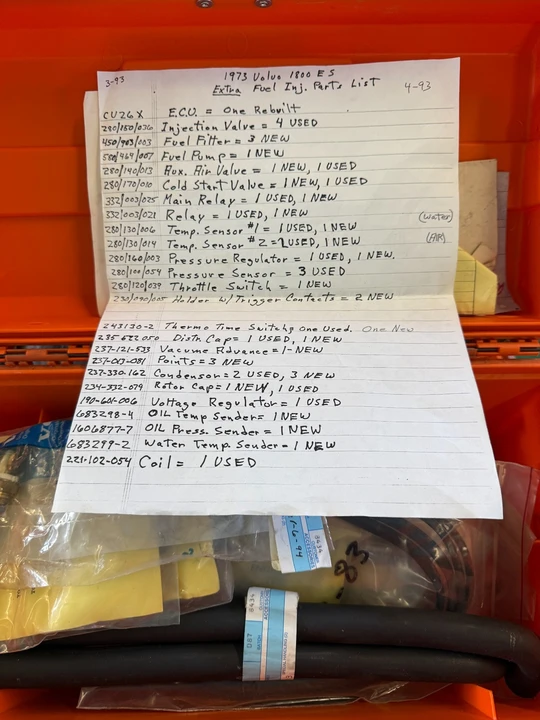 3-93
1973 Volvo 1800 ES
Extra Fuel Inj. Parts List 4-93
CU26X E.C.U. = One Rebuilt
280/150/036 Injection Valve = 4 USED
450/903/003 Fuel Filter = 3 NEW
580/464/007 Fuel Pump = 1 NEW
280/140/013 Aux. Air Valve = 1 NEW, 1 USED
280/170/010 Cold Start Valve = 1 NEW, 1 USED
332/003/025 Main Relay = 1 USED, 1 NEW
332/003/021 Relay = 1 USED, 1 NEW
280/130/006 Temp. Sensor #1 = 1 USED, 1 NEW (Water)
280/130/014 Temp. Sensor #2 = 2 USED, 1 NEW (AIR)
280/160/003 Pressure Regulator = 1 USED, 1 NEW.
280/100/054 Pressure Sensor = 3 USED
280/120/039 Throttle Switch = 1 NEW
230/090/005 Holder w/ Trigger Contacts = 2 NEW
243130-2 Thermo Time Switchg One Used. One New
235-632-050 Distr. Cap = 1 USED, 1 NEW
237-121-533 Vacume Advance = 1-NEW
237-013-081 Points = 3 NEW
237-330-162 Condensor = 2 USED, 3 NEW
234-332-079 Rotor Cap = 1 NEW, 1 USED
190-601-006 Voltage Regulator = 1 USED
683298-4 OIL Temp Sender = 1 NEW
1606877-7 OIL Press. Sender = 1 NEW
683299-2 Water Temp. Sender = 1 NEW
221-102-054 Coil = 1 USED
1-6-94
8434
83
8434
DB7